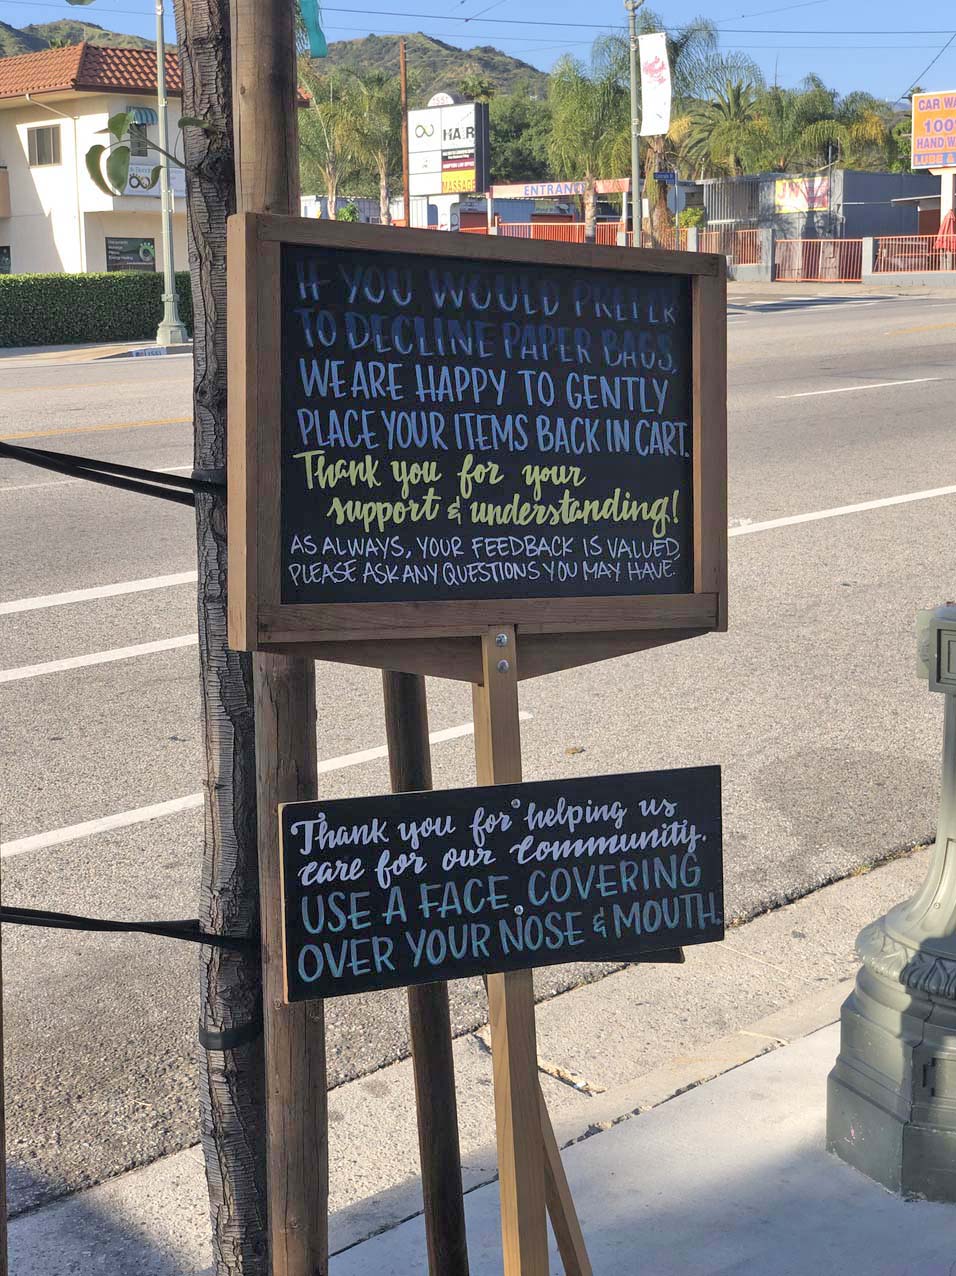 HAIR
MASSAGE
ENTRANCE
CAR WA
100
HAND W
LUBE &
IF YOU WOULD PREFER
TO DECLINE PAPER BAGS,
WE ARE HAPPY TO GENTLY
PLACE YOUR ITEMS BACK IN CART.
Thank you for your
support & understanding!
AS ALWAYS, YOUR FEEDBACK IS VALUED,
PLEASE ASK ANY QUESTIONS YOU MAY HAVE.
Thank you for helping us
care for our community.
USE A FACE COVERING
OVER YOUR NOSE & MOUTH.